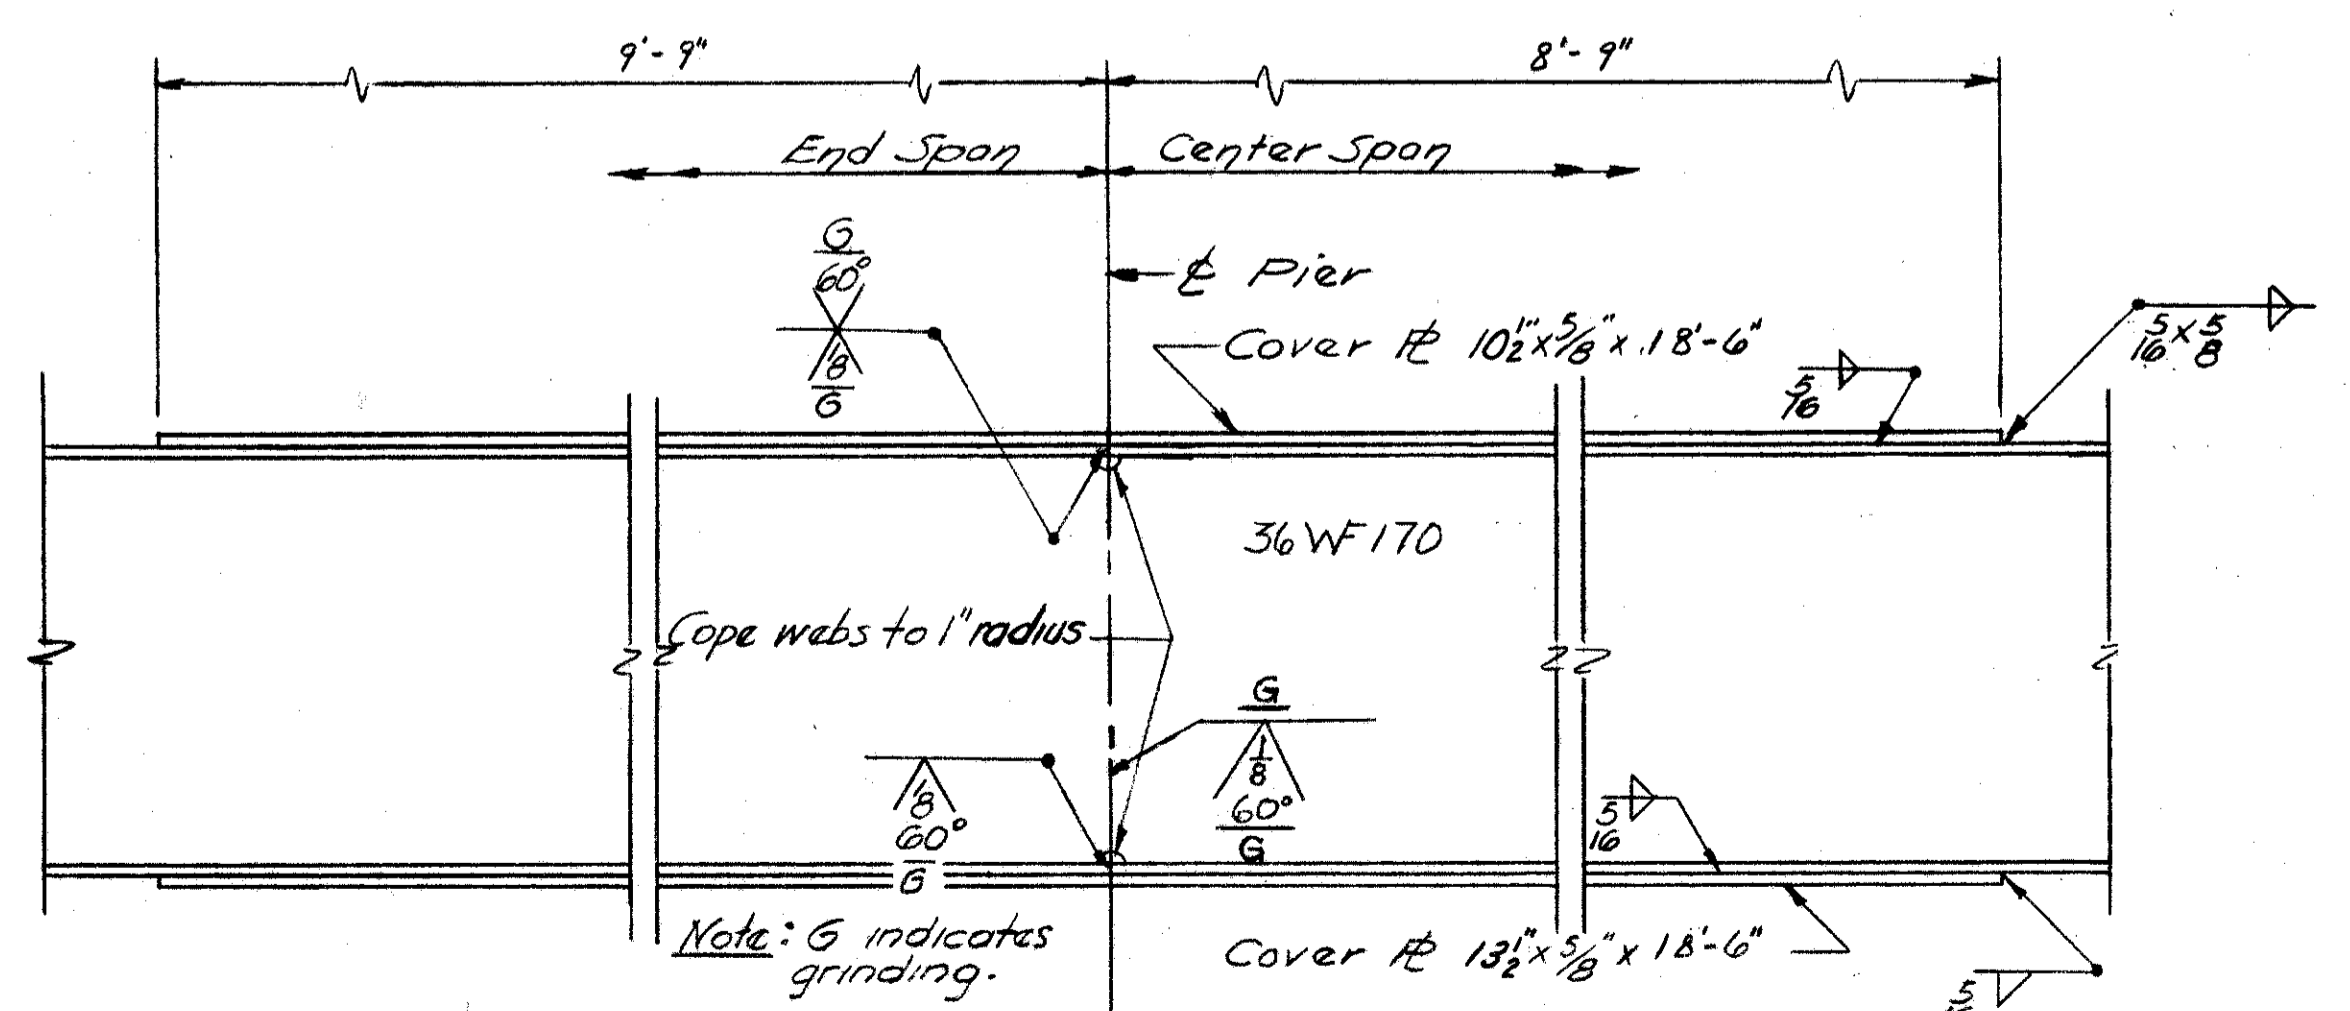 9'-9"
8'-9"
End Span
Center Span
G
60°
1/8
G
℄ Pier
Cover ℞ 10½" x 5/8" x 18'-6"
5/16 x 5/8
5/16
36 WF 170
Cope webs to 1" radius
G
1/8
60°
G
1/8
60°
G
5/16
Note: G indicates
grinding.
Cover ℞ 13½" x 5/8" x 18'-6"